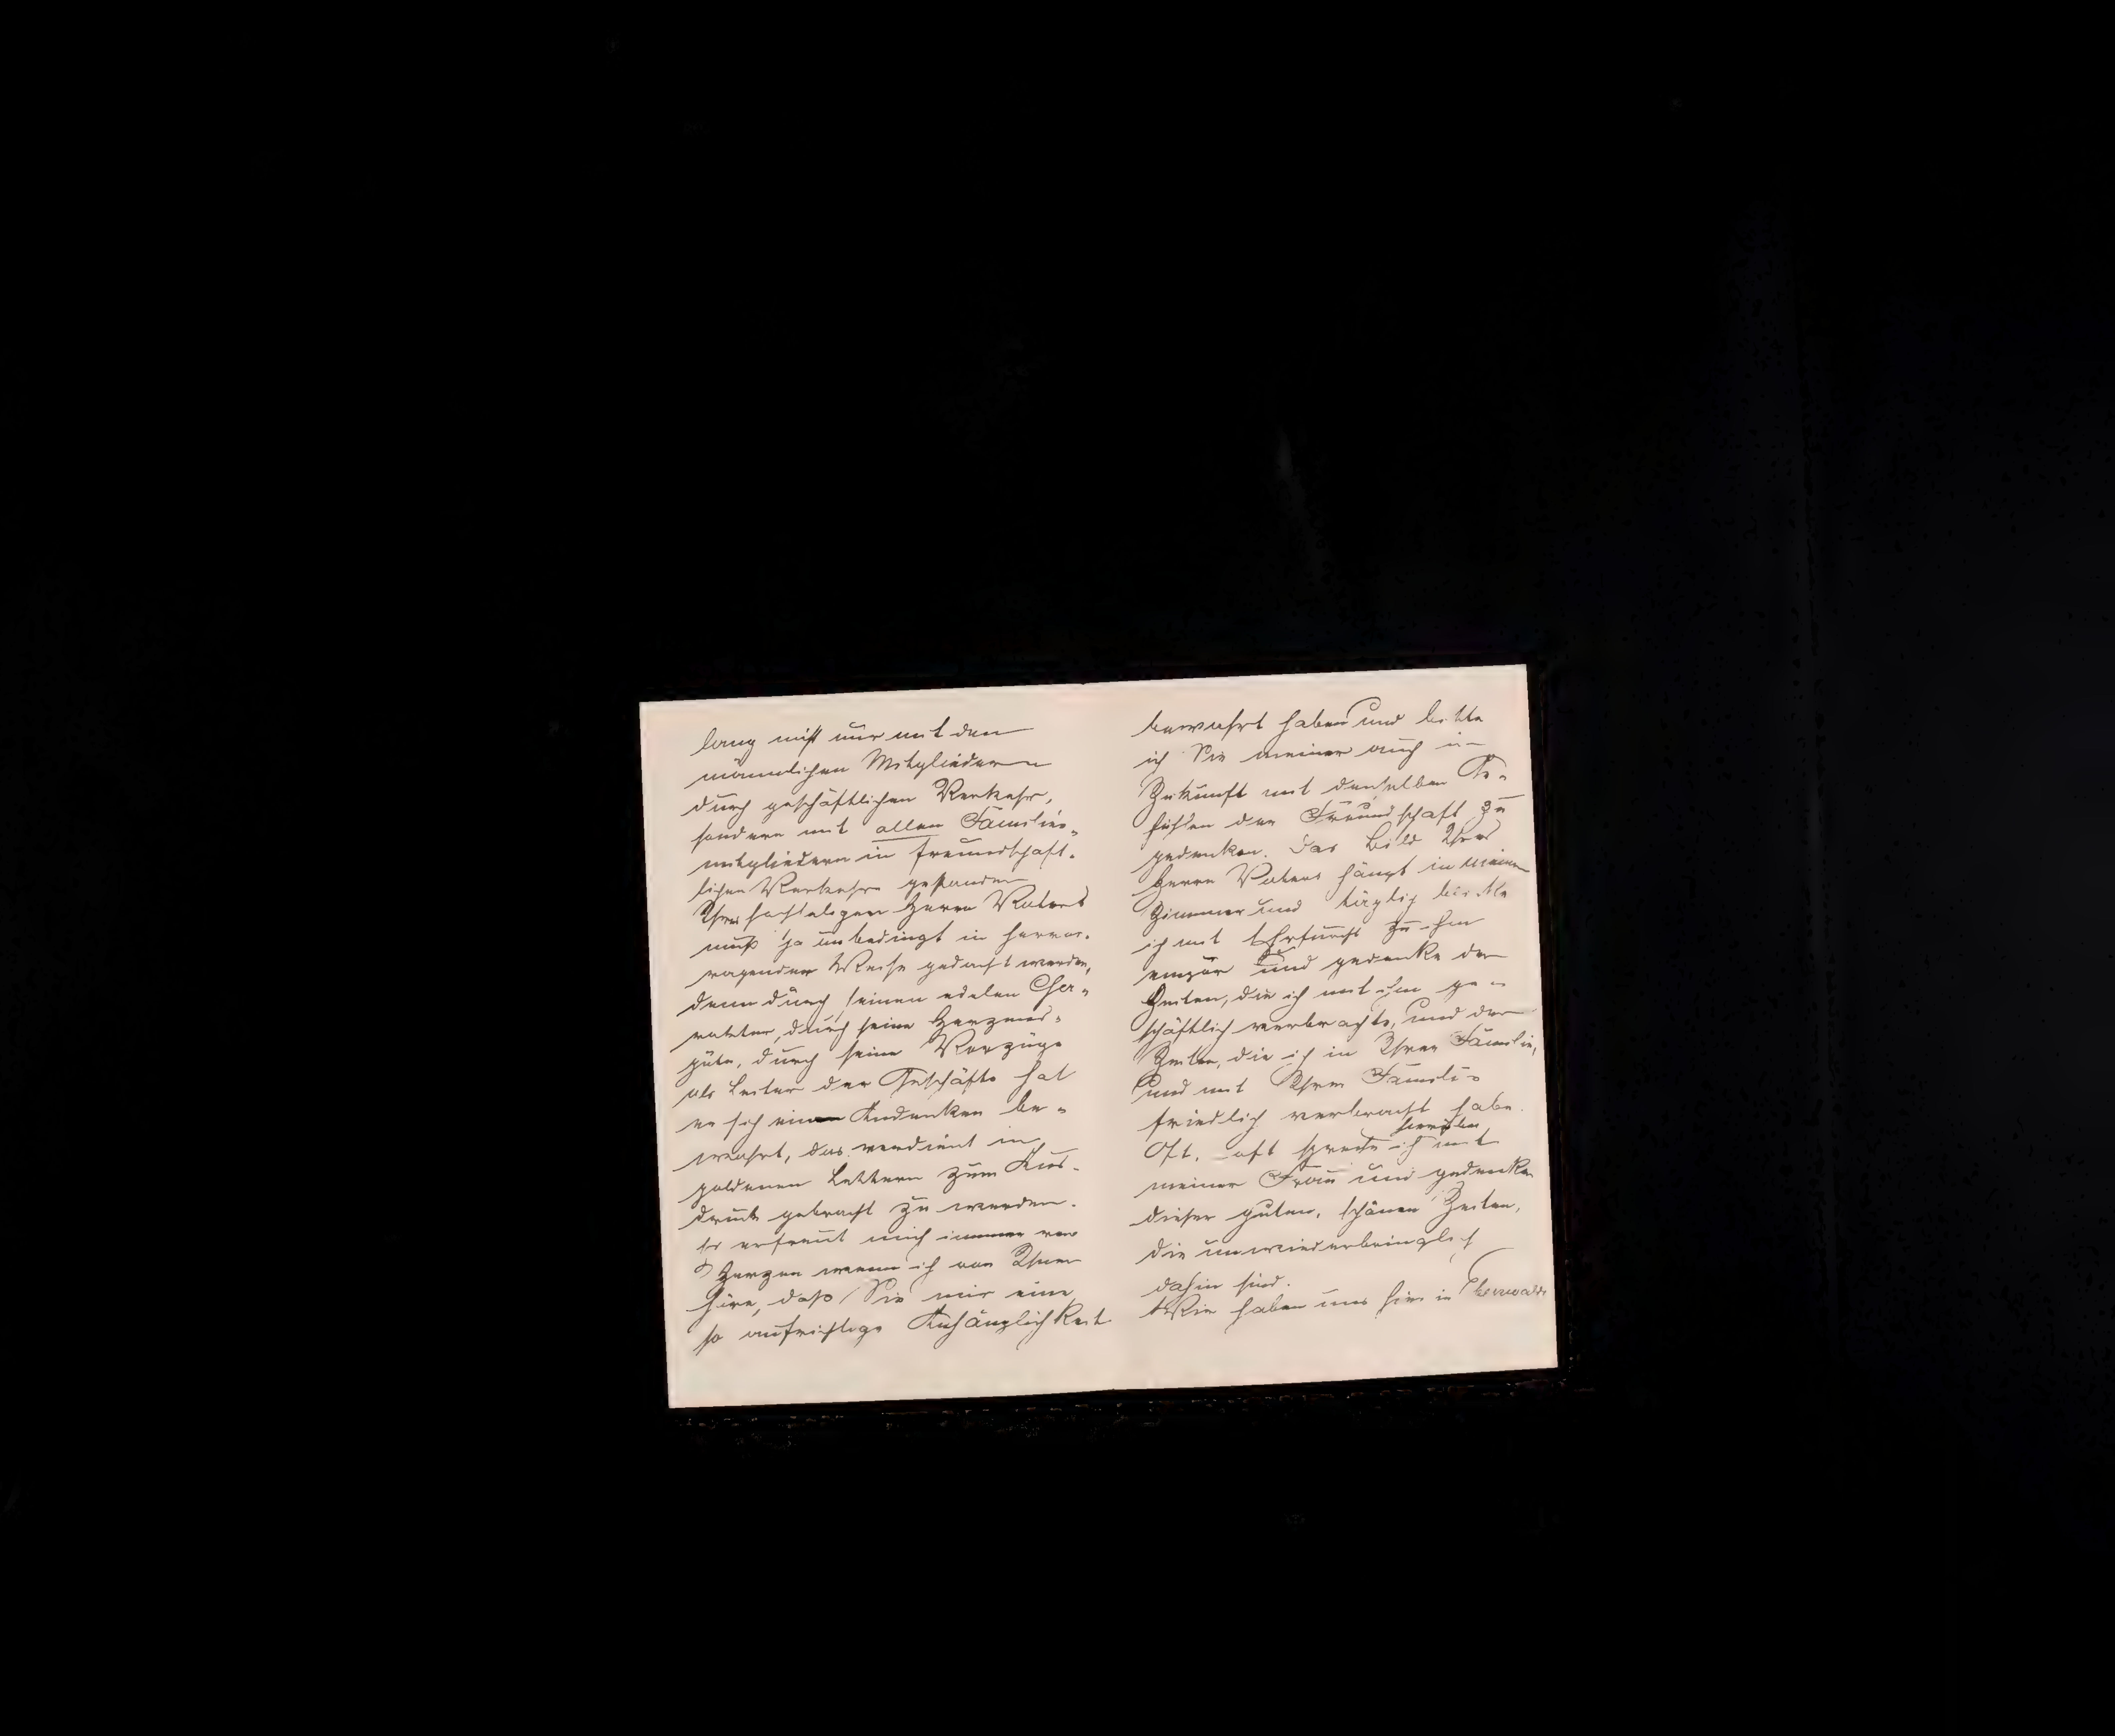 lang nicht nur mit den
männlichen Mitgliedern
durch geschäftlichen Verkehr,
sondern mit allen Familien-
mitgliedern in freundschaft-
lichen Verkehr gestanden
Ihres hochseligen Herrn Vaters
muß ja unbedingt in hervor-
ragender Weise gedacht werden,
denn durch seinen edelen Cha-
rakter, durch seine Herzens-
güte, durch seine Vorzüge
als Leiter der Geschäfte hat
er sich ein Andenken be-
wahrt, das verdient in
goldenen Lettern zum Aus-
druck gebracht zu werden.
Es erfreut mich immer von
Herzen wenn ich von Ihnen
höre, daß Sie mir eine
so aufrichtige Anhänglichkeit
bewahrt haben und bitte
ich Sie meiner auch in
Zukunft mit denselben Ge-
fühlen der Freundschaft zu
gedenken. Das Bild Ihres
Herrn Vaters hängt in meinem
Zimmer und täglich blicke
ich mit Ehrfurcht zu ihm
empor und gedenke der
Zeiten, die ich mit ihm ge-
schäftlich verbrachte, und der
Zeiten, die ich in Ihrer Familie,
und mit Ihrer Familie
friedlich verbracht habe.
Oft, oft spreche ich hierüber mit
meiner Frau und gedenke
dieser guten, schönen Zeiten,
die unwiederbringlich
dahin sind.
Wir haben uns hier in